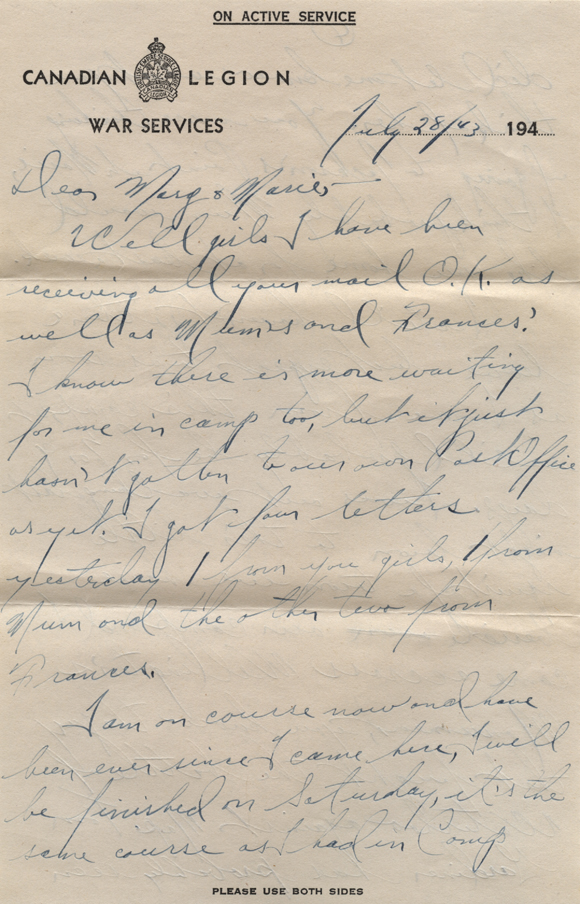 ON ACTIVE SERVICE
CANADIAN LEGION
WAR SERVICES
July 28/43 194
Dear Marg & Marie:-
Well girls I have been
receiving all your mail O.K. as
well as Mum's and Frances'.
I know there is more waiting
for me in camp too, but it just
hasn't gotten to our own Post Office
as yet. I got four letters
yesterday 1 from you girls, 1 from
Mum and the other two from
Frances.
I am on course now and have
been ever since I came here, I will
be finished on Saturday, it's the
same course as I had in Camp
PLEASE USE BOTH SIDES